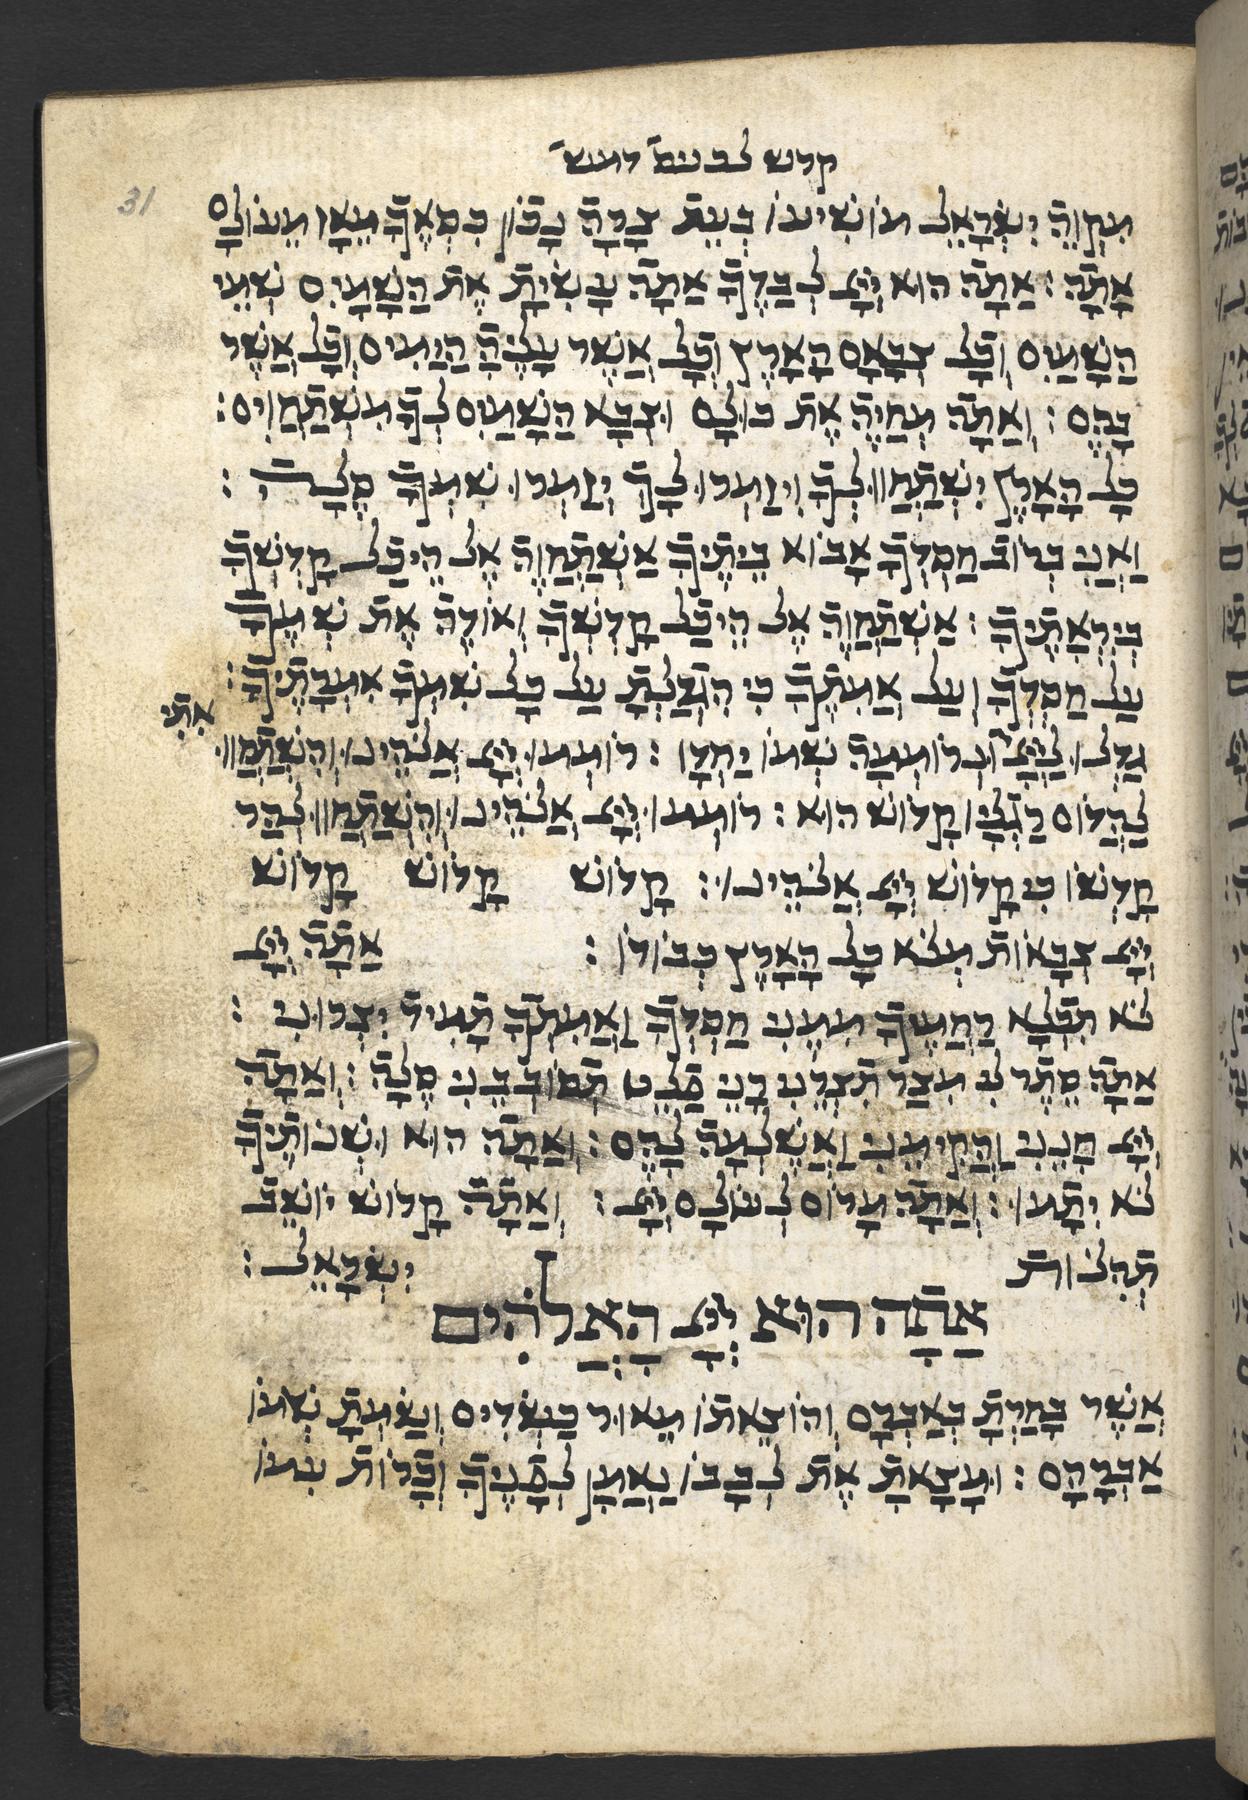 קדש לבנים דמש
31
מִקְוֵה יִשְׂרָאֵל מוֹשִׁיעוֹ בְּעֵת צָרָה נָכוֹן כִּסְאֲךָ מֵאָז מֵעוֹלָם
אָתָּה׃ אַתָּה הוּא יְיָ לְבַדֶּךָ אַתָּה עָשִׂיתָ אֶת הַשָּׁמַיִם שְׁמֵי
הַשָּׁמַיִם וְכָל צְבָאָם הָאָרֶץ וְכָל אֲשֶׁר עָלֶיהָ הַיַּמִּים וְכָל אֲשֶׁר
בָּהֶם׃ וְאַתָּה מְחַיֶּה אֶת כּוּלָּם וּצְבָא הַשָּׁמַיִם לְךָ מִשְׁתַּחֲוִים׃
כָּל הָאָרֶץ יִשְׁתַּחֲווּ לְךָ וִיזַמְּרוּ לָךְ יְזַמְּרוּ שִׁמְךָ סֶלָה׃
וַאֲנִי בְּרוֹב חַסְדְּךָ אָבוֹא בֵיתֶיךָ אֶשְׁתַּחֲוֶה אֶל הֵיכַל קָדְשְׁךָ
בְּיִרְאָתֶיךָ׃ אֶשְׁתַּחֲוֶה אֶל הֵיכַל קָדְשְׁךָ וְאוֹדֶה אֶת שְׁמֶךָ
עַל חַסְדְּךָ וְעַל אֲמִתֶּךָ כִּי הִגְדַּלְתָּ עַל כָּל שִׁמְךָ אִמְרָתֶיךָ׃
אִתִּי
גַּדְּלוּ לַיְיָ וּנְרוֹמְמָה שְׁמוֹ יַחְדָּו׃ רוֹמְמוּ יְיָ אֱלֹהֵינוּ וְהִשְׁתַּחֲווּ
לַהֲדוֹם רַגְלָיו קָדוֹשׁ הוּא׃ רוֹמְמוּ יְיָ אֱלֹהֵינוּ וְהִשְׁתַּחֲווּ לְהַר
קָדְשׁוֹ כִּי קָדוֹשׁ יְיָ אֱלֹהֵינוּ׃ קָדוֹשׁ קָדוֹשׁ קָדוֹשׁ
יְיָ צְבָאוֹת מְלֹא כָל הָאָרֶץ כְּבוֹדוֹ׃ אַתָּה יְיָ
לֹא תִכְלָא רַחֲמֶיךָ מִמֶּנִּי חַסְדְּךָ וַאֲמִתְּךָ תָּמִיד יִצְּרוּנִי׃
אַתָּה סֵתֶר לִי מִצַּר תִּצְּרֵנִי רָנֵּי פַלֵּט תְּסוֹבְבֵנִי סֶלָה׃ וְאַתָּה
יְיָ חָנֵּנִי וַהֲקִימֵנִי וַאֲשַׁלְּמָה לָהֶם׃ וְאַתָּה הוּא וּשְׁנוֹתֶיךָ
לֹא יִתָּמּוּ׃ וְאַתָּה מָרוֹם לְעוֹלָם יְיָ׃ וְאַתָּה קָדוֹשׁ יוֹשֵׁב
תְּהִלּוֹת יִשְׂרָאֵל׃
אַתָּה הוּא יְיָ הָאֱלֹהִים
אֲשֶׁר בָּחַרְתָּ בְּאַבְרָם וְהוֹצֵאתוֹ מֵאוּר כַּשְׂדִּים וְשַׂמְתָּ שְׁמוֹ
אַבְרָהָם׃ וּמָצָאתָ אֶת לְבָבוֹ נֶאֱמָן לְפָנֶיךָ וְכָרוֹת עִמּוֹ